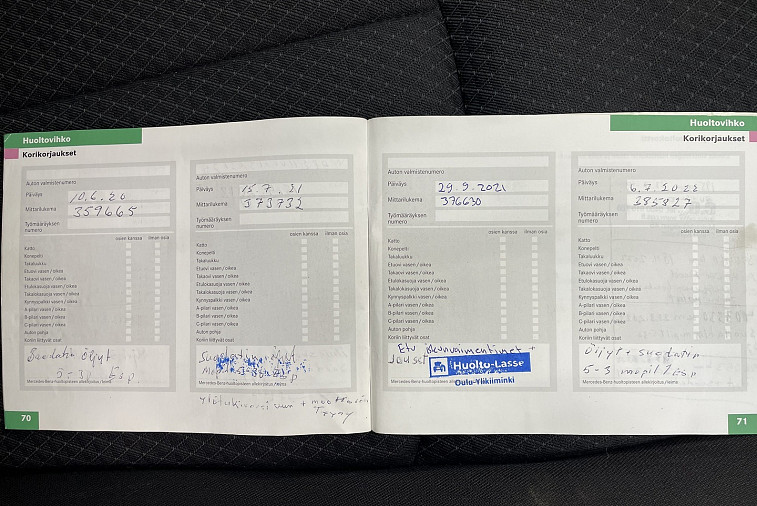 Huoltovihko
Korikorjaukset
Auton valmistenumero
Päiväys 10.6.20
Mittarilukema 359665
Työmääräyksen
numero
osien kanssa ilman osia
Katto
Konepelti
Takaluukku
Etuovi vasen / oikea
Takaovi vasen / oikea
Etulokasuoja vasen / oikea
Takalokasuoja vasen / oikea
Kynnyspalkki vasen / oikea
A-pilari vasen / oikea
B-pilari vasen / oikea
C-pilari vasen / oikea
Auton pohja
Koriin liittyvät osat
öljyt
5-30 Esp
Mercedes-Benz-huoltopisteen allekirjoitus / leima
70
Auton valmistenumero
Päiväys 15.7.21
Mittarilukema 373732
Työmääräyksen
numero
osien kanssa ilman osia
Katto
Konepelti
Takaluukku
Etuovi vasen / oikea
Takaovi vasen / oikea
Etulokasuoja vasen / oikea
Takalokasuoja vasen / oikea
Kynnyspalkki vasen / oikea
A-pilari vasen / oikea
B-pilari vasen / oikea
C-pilari vasen / oikea
Auton pohja
Koriin liittyvät osat
Mercedes-Benz-huoltopisteen allekirjoitus / leima
+ moottorin
Tyyny
Huoltovihko
Korikorjaukset
Auton valmistenumero
Päiväys 29.9.2021
Mittarilukema 376630
Työmääräyksen
numero
osien kanssa ilman osia
Katto
Konepelti
Takaluukku
Etuovi vasen / oikea
Takaovi vasen / oikea
Etulokasuoja vasen / oikea
Takalokasuoja vasen / oikea
Kynnyspalkki vasen / oikea
A-pilari vasen / oikea
B-pilari vasen / oikea
C-pilari vasen / oikea
Auton pohja
Koriin liittyvät osat
Etu iskunvaimentimet +
Jouset
Huolto-Lasse
Oulu-Ylikiiminki
Mercedes-Benz-huoltopisteen allekirjoitus / leima
Auton valmistenumero
Päiväys 6.7.2022
Mittarilukema 385827
Työmääräyksen
numero
osien kanssa ilman osia
Katto
Konepelti
Takaluukku
Etuovi vasen / oikea
Takaovi vasen / oikea
Etulokasuoja vasen / oikea
Takalokasuoja vasen / oikea
Kynnyspalkki vasen / oikea
A-pilari vasen / oikea
B-pilari vasen / oikea
C-pilari vasen / oikea
Auton pohja
Koriin liittyvät osat
Öljyt + suodatin
Mercedes-Benz-huoltopisteen allekirjoitus / leima
71